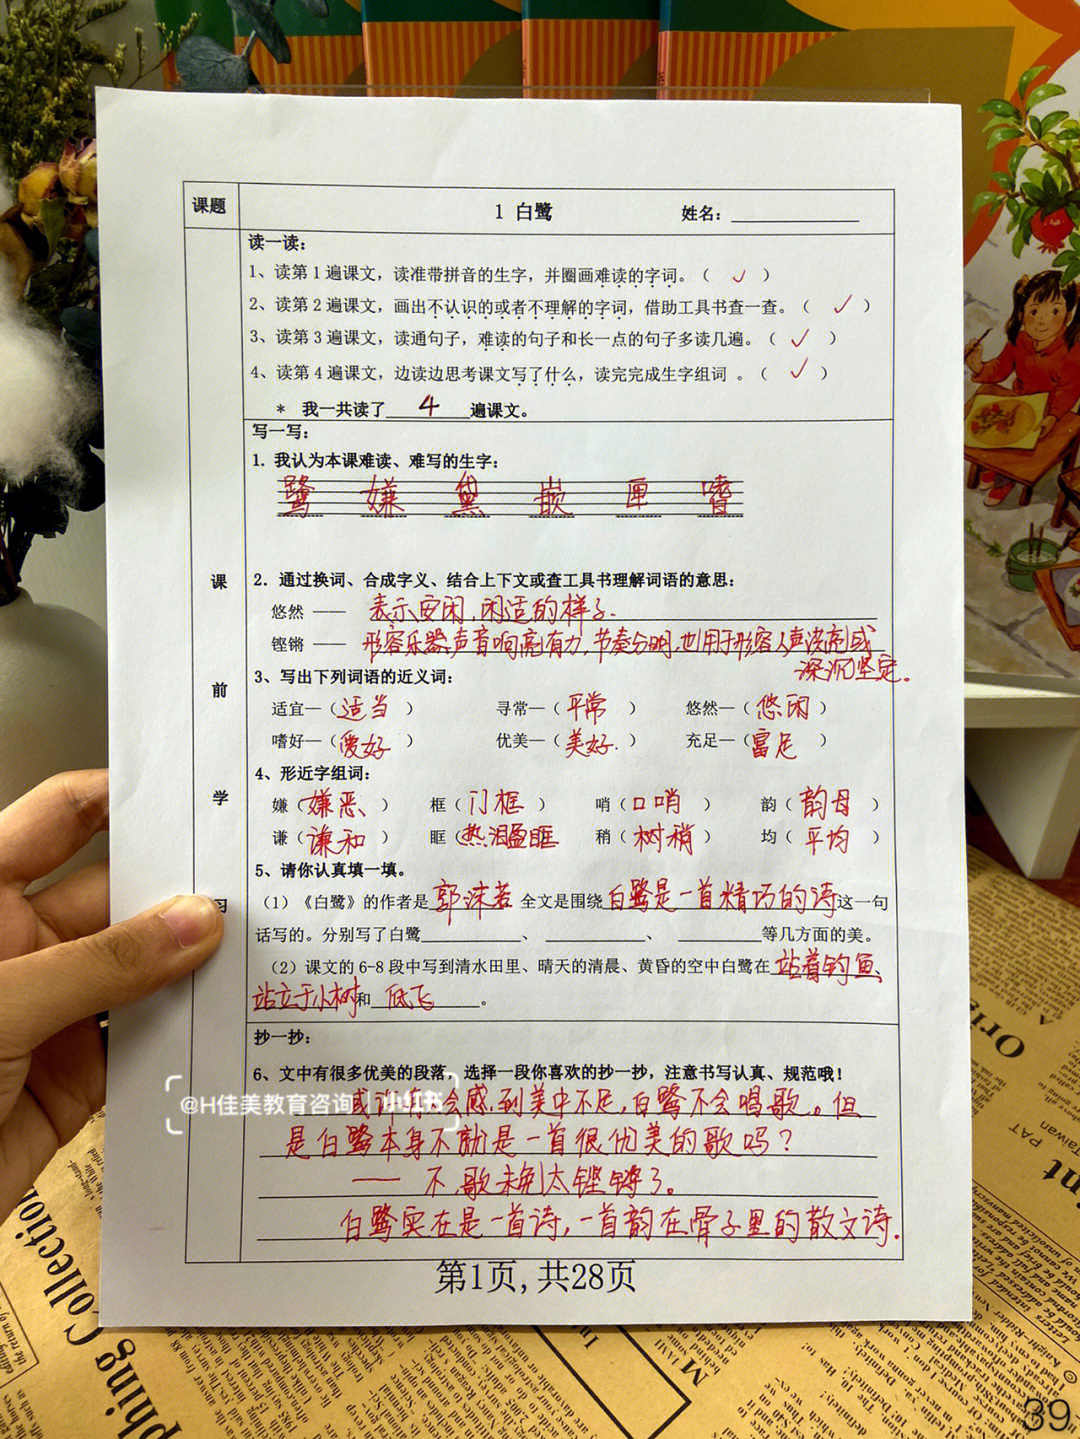 课题
1 白鹭
姓名：
读一读：
1、读第1遍课文，读准带拼音的生字，并圈画难读的字词。（ ✓ ）
2、读第2遍课文，画出不认识的或者不理解的字词，借助工具书查一查。（ ✓ ）
3、读第3遍课文，读通句子，难读的句子和长一点的句子多读几遍。（ ✓ ）
4、读第4遍课文，边读边思考课文写了什么，读完完成生字组词 。（ ✓ ）
* 我一共读了 4 遍课文。
课前学习
写一写：
1. 我认为本课难读、难写的生字：
鹭 嫌 黛 嵌 匣 嗜
2. 通过换词、合成字义、结合上下文或查工具书理解词语的意思：
悠然 —— 表示安闲，闲适的样子.
铿锵 —— 形容乐器声音响亮有力，节奏分明，也用于形容人声洪亮或
深沉坚定。
3、写出下列词语的近义词：
适宜—（适当 ） 寻常—（ 平常 ） 悠然—（ 悠闲 ）
嗜好—（爱好 ） 优美—（ 美好. ） 充足—（富足 ）
4、形近字组词：
嫌（嫌恶 ） 框（ 门框 ） 哨（口哨 ） 韵（ 韵母 ）
谦（谦和 ） 眶（热泪盈眶 稍（树稍 ） 均（ 平均 ）
5、请你认真填一填。
（1）《白鹭》的作者是 郭沫若 全文是围绕 白鹭是一首精巧的诗 这一句
话写的。分别写了白鹭 、 、 等几方面的美。
（2）课文的 6-8 段中写到清水田里、晴天的清晨、黄昏的空中白鹭在 站着钓鱼、
站立于小树 和 低飞 。
抄一抄：
6、文中有很多优美的段落，选择一段你喜欢的抄一抄，注意书写认真、规范哦！
或许 会感到美中不足，白鹭不会唱歌。但
是白鹭本身不就是一首很优美的歌吗？
—— 不，歌未免太铿锵了。
白鹭实在是一首诗，一首韵在骨子里的散文诗.
@H佳美教育咨询 小红书
第1页,共28页
Collection
39